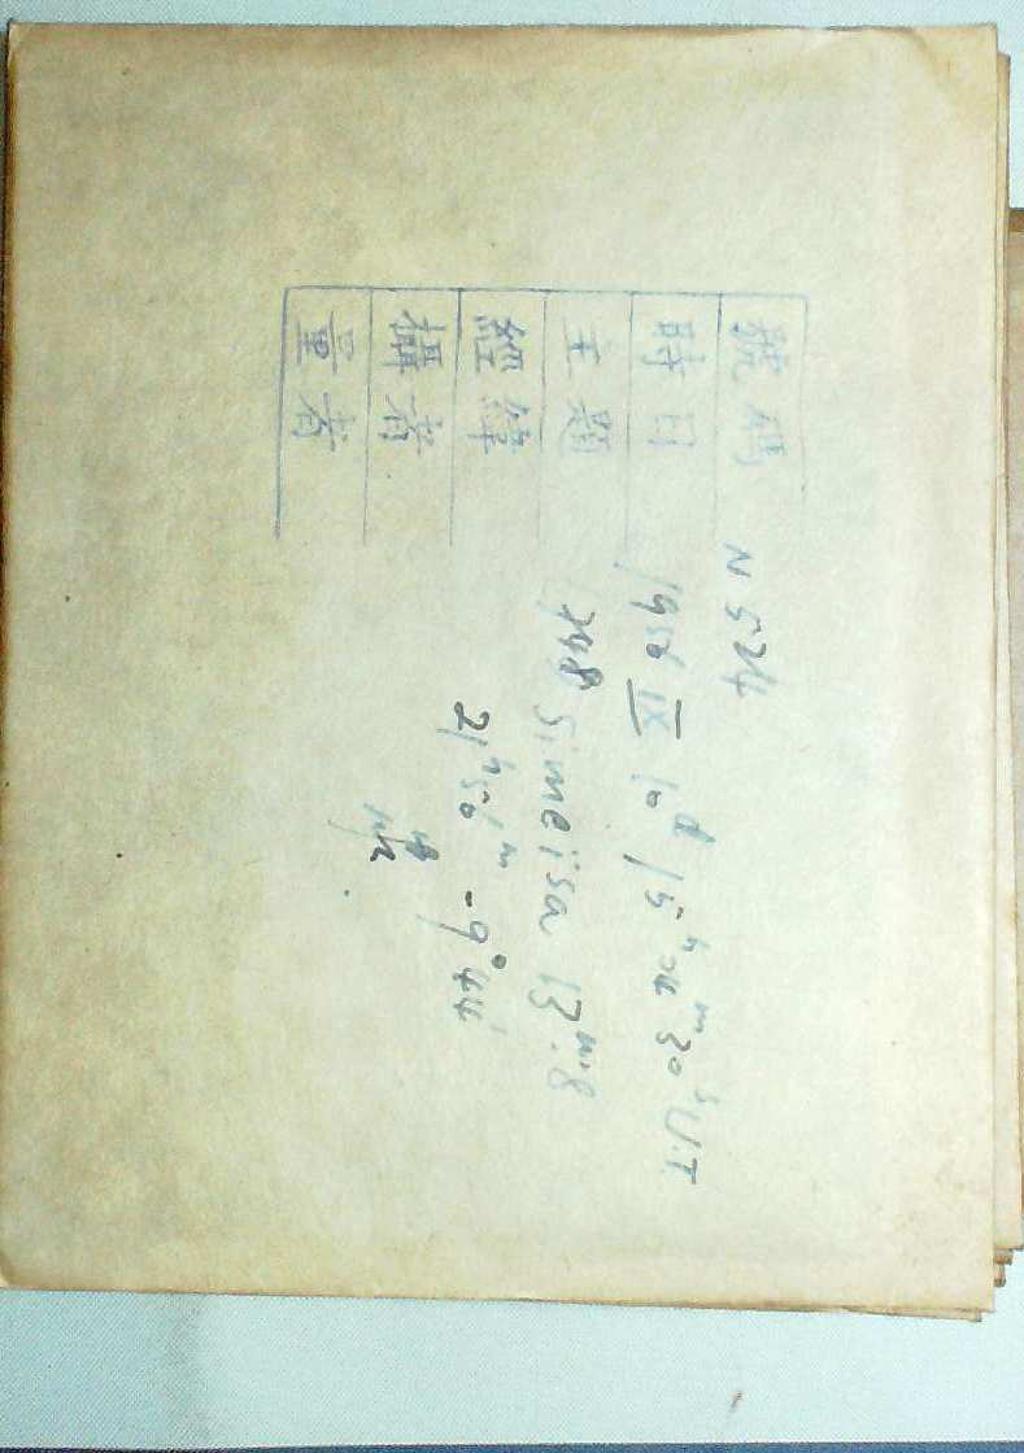 號碼 N 524
時日 1956 IX 10ᵈ 15ʰ 04ᵐ 30ˢ U.T
主題 748 Simeïsa 13ᵐ.8
經緯 21ʰ56ᵐ -9°44'
攝者
量者